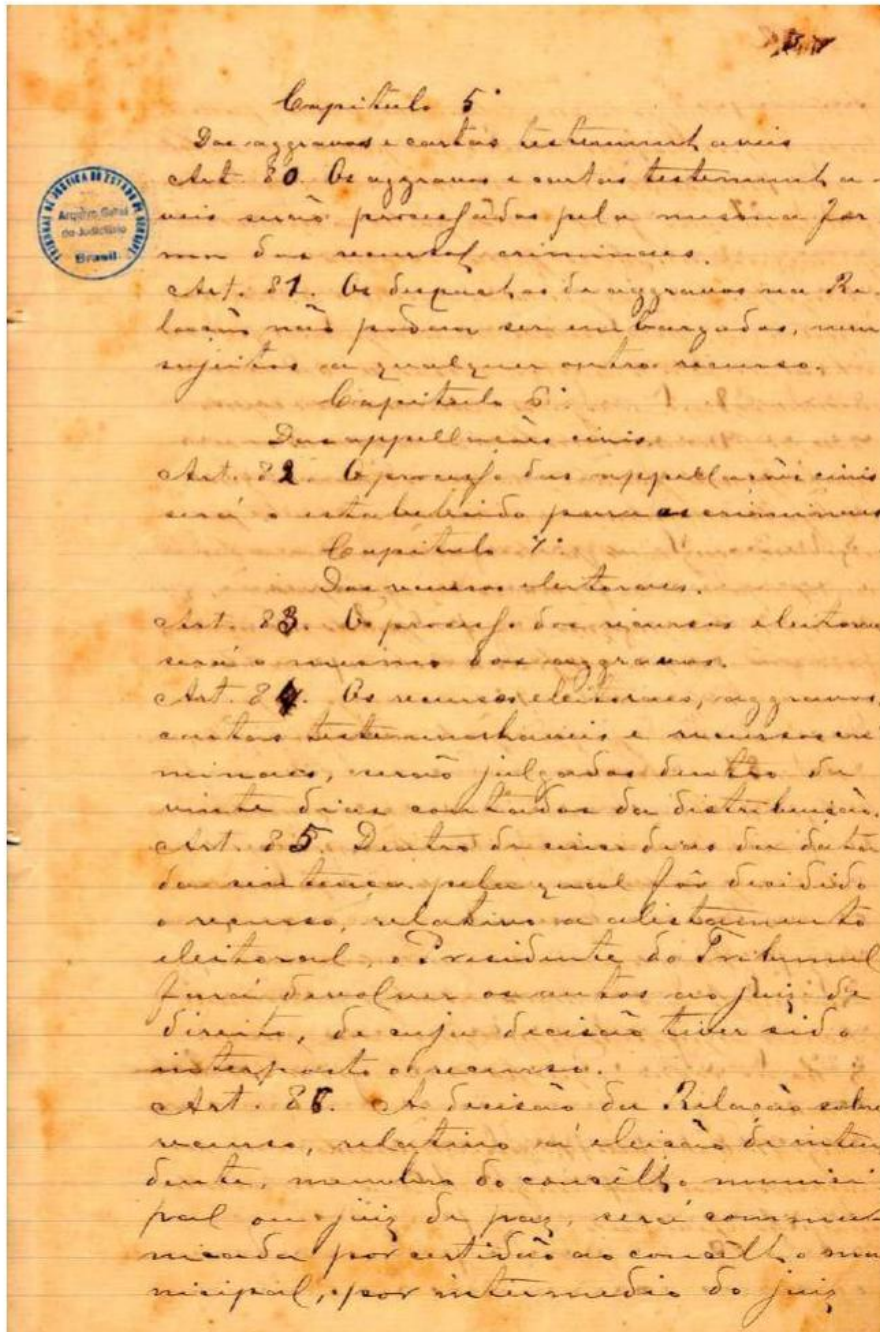 Capitulo 5º
Dos aggravos e cartas testemunhaveis
Art. 80. Os aggravos e cartas testemunha-
veis serão processados pela mesma for
ma dos recursos criminaes.
Art. 81. Os despachos de aggravos na Re-
lação não podem ser embargados, nem
sujeitos a qualquer outro recurso.
Capitulo 6º
Das appellações civis.
Art. 82. O processo das appellações civis
será o estabelecido para as criminaes
Capitulo 7º
Dos recursos eleitoraes.
Art. 83. O processo dos recursos eleitoraes
será o mesmo dos aggravos.
Art. 84. Os recursos eleitoraes, aggravos,
cartas testemunhaveis e recursos cri
minaes, serão julgados dentro de
vinte dias contados da distribuição.
Art. 85. Dentro de cinco dias da data
da sentença pela qual fôr decidido
o recurso, relativo a alistamento
eleitoral, o Presidente do Tribunal
fará devolver os autos ao juiz de
direito, de cuja decisão tiver sido
interposto o recurso.
Art. 86. A decisão da Relação sobre
recurso, relativo á eleição de inten
dente, membro do conselho munici
pal ou juiz de paz, será commu
nicada por certidão ao conselho mu
nicipal, por intermedio do juiz
TRIBUNAL DE JUSTIÇA DO ESTADO DE SERGIPE
Arquivo Geral
do Judiciário
Brasil